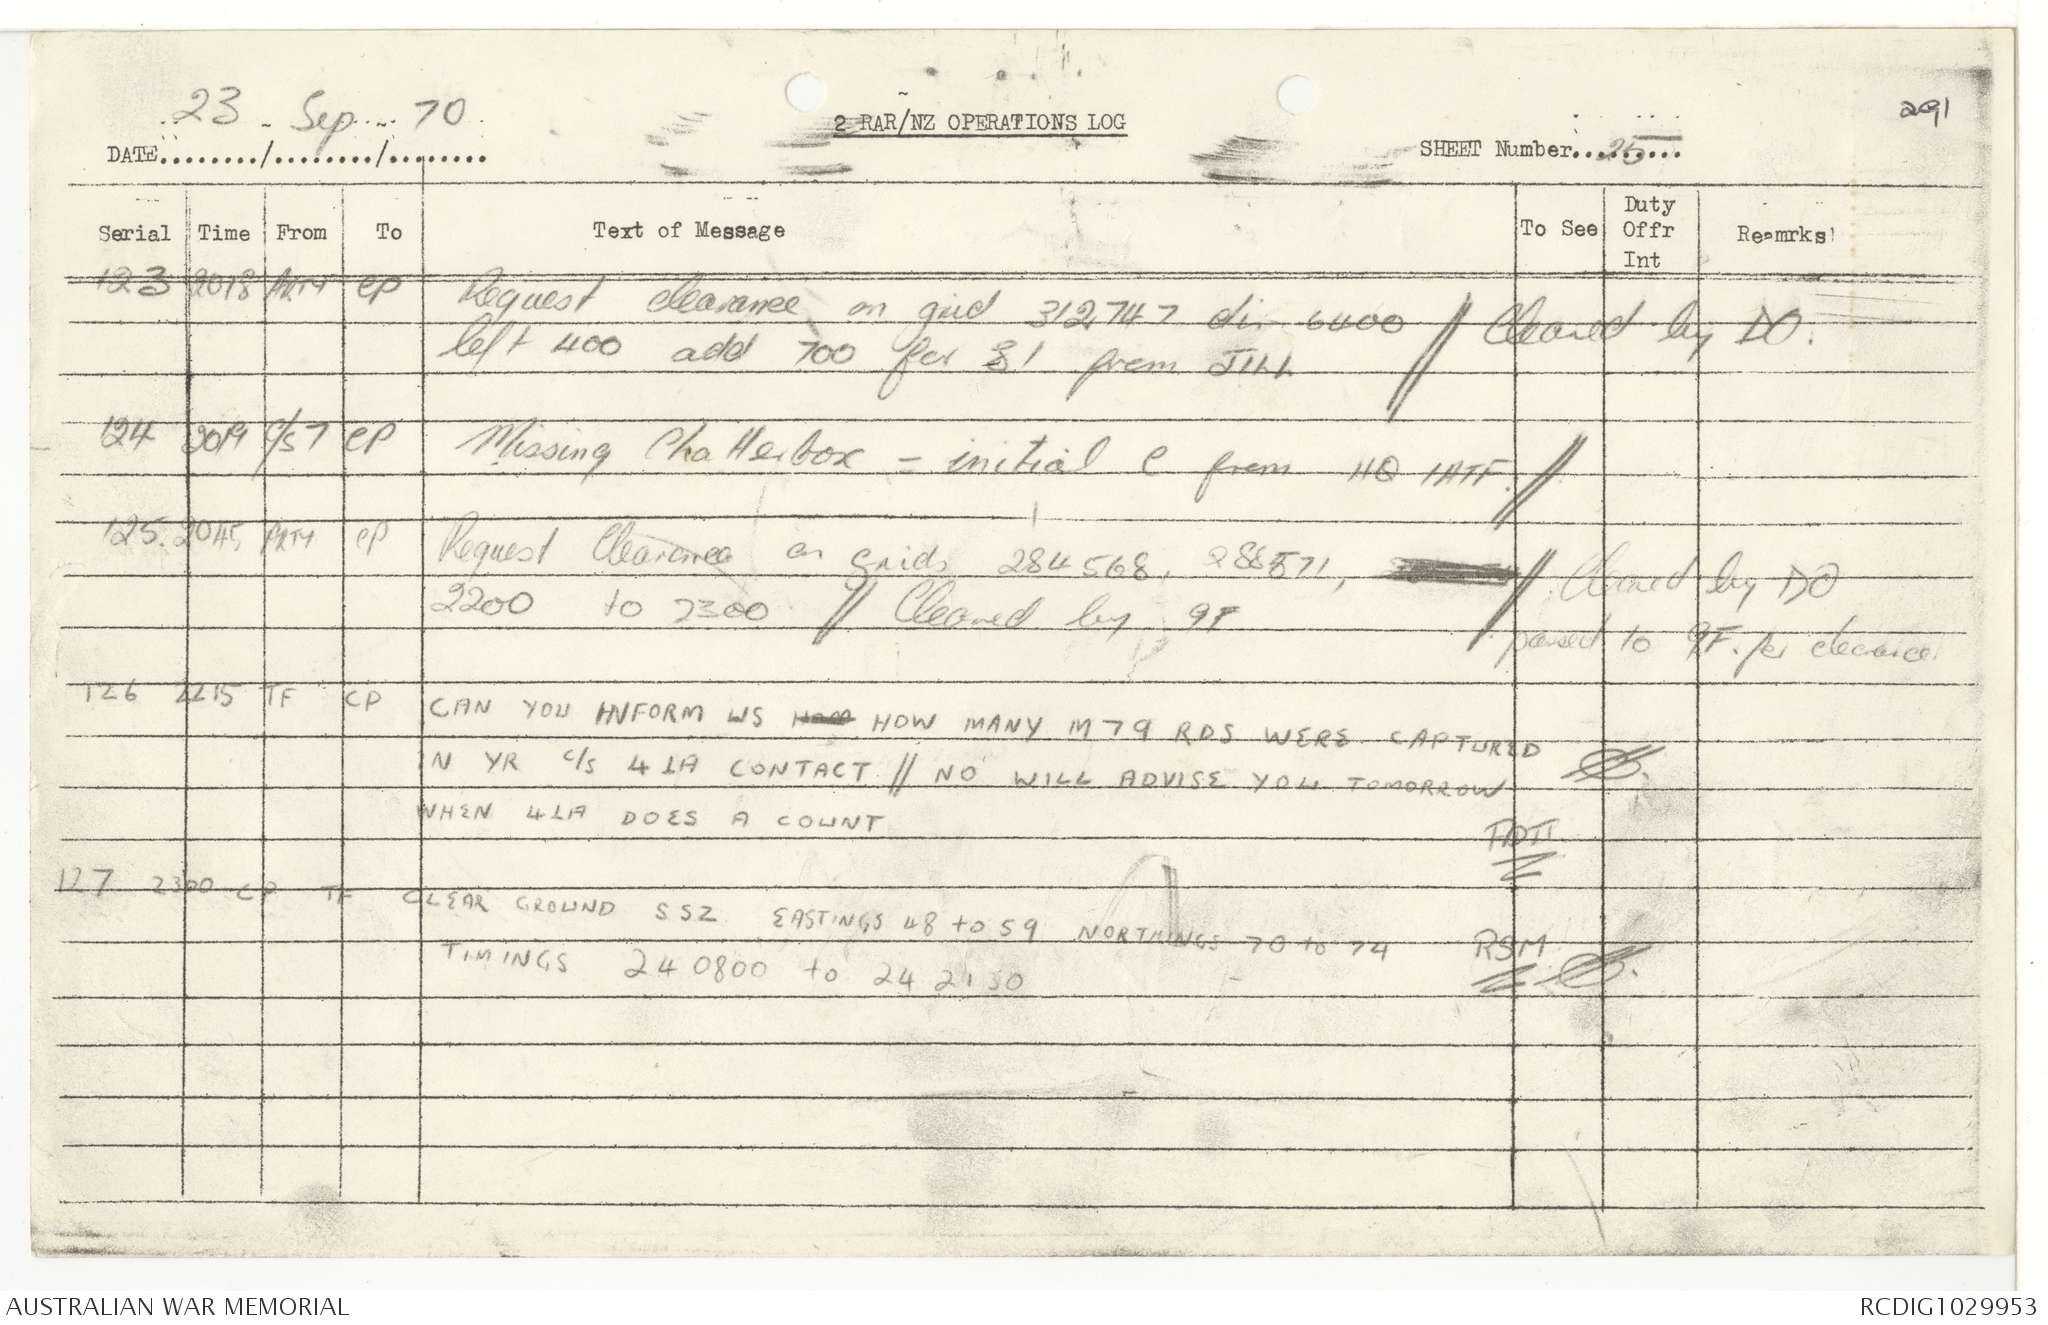 291
23 Sep 70
2 RAR/NZ OPERATIONS LOG
DATE......../......../........
SHEET Number...25....
Serial Time From To Text of Message To See Duty Offr Int Reamrks
123 2018 ARTY CP Request clearance on grid 312747 dir 6400 // Cleared by DO.
left 400 add 700 for 81 from JILL
124 2019 C/S 7 CP Missing Chatterbox = initial C from HQ 1ATF. //
125. 2045 ARTY CP Request Clearance on grids 284568, 288571, // Cleared by DO
2200 to 2300 // Cleared by 9F passed to 9F. for clearance.
126 2215 TF CP CAN YOU INFORM US HOW MANY M79 RDS WERE CAPTURED
IN YR C/S 41A CONTACT // NO WILL ADVISE YOU TOMORROW
WHEN 41A DOES A COUNT
127 2300 CP TF CLEAR GROUND SSZ EASTINGS 48 to 59 NORTHINGS 70 to 74 RSM
TIMINGS 240800 to 242130
AUSTRALIAN WAR MEMORIAL
RCDIG1029953